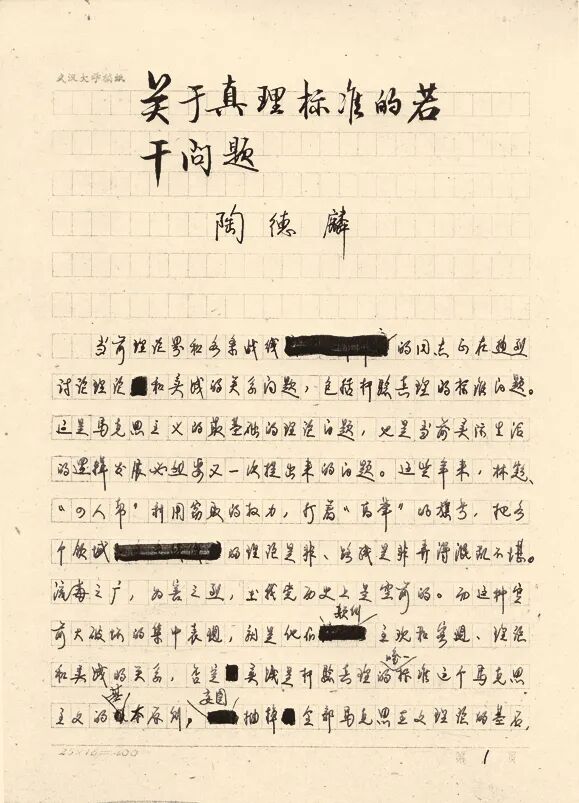 武汉大学稿纸
关于真理标准的若
干问题
陶德麟
当前理论界和各条战线的同志正在热烈
讨论理论和实践的关系问题，包括检验真理的标准问题。
这是马克思主义的最基础的理论问题，也是当前实际生活
的逻辑发展必然要又一次提出来的问题。这些年来，林彪、
“四人帮”利用窃取的权力，打着“高举”的旗号，把各
个领域的理论是非、路线是非弄得混乱不堪。
流毒之广，为害之烈，在我党历史上是空前的。而这种空
前大破坏的集中表现，就是他们颠倒主观和客观、理论
和实践的关系，否定实践是检验真理的唯一标准这个马克思
主义的基本原则，妄图抽掉全部马克思主义理论的基石，
25×16=400
第1页